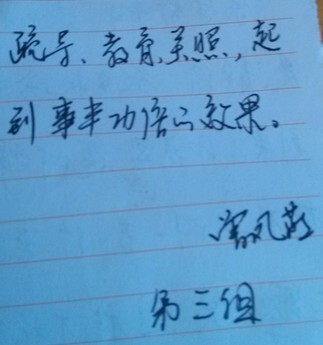 疏导、教育、关照，起
到事半功倍的效果。
曾凤燕
第三组